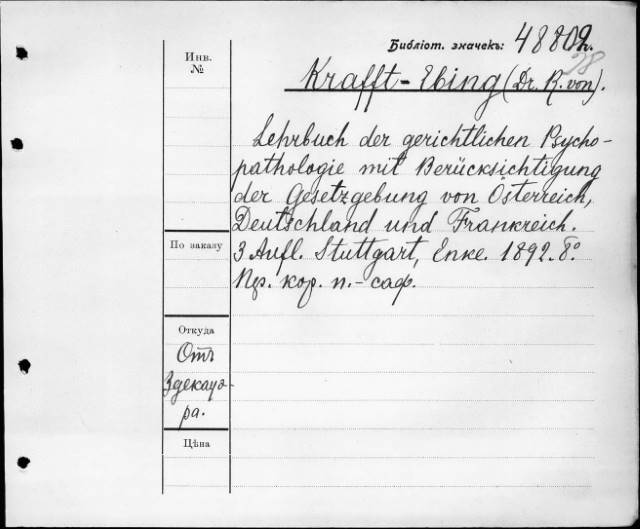 Библіот. значекъ: 48802.
28
Krafft-Ebing (Dr. R. von).
Инв.
№
Lehrbuch der gerichtlichen Psycho-
pathologie mit Berücksichtigung
der Gesetzgebung von Österreich,
Deutschland und Frankreich.
По заказу
3 Aufl. Stuttgart, Enke. 1892. 8°.
Пер. кор. п.-саф.
Откуда
Отъ
Здекауэ-
ра.
Цѣна